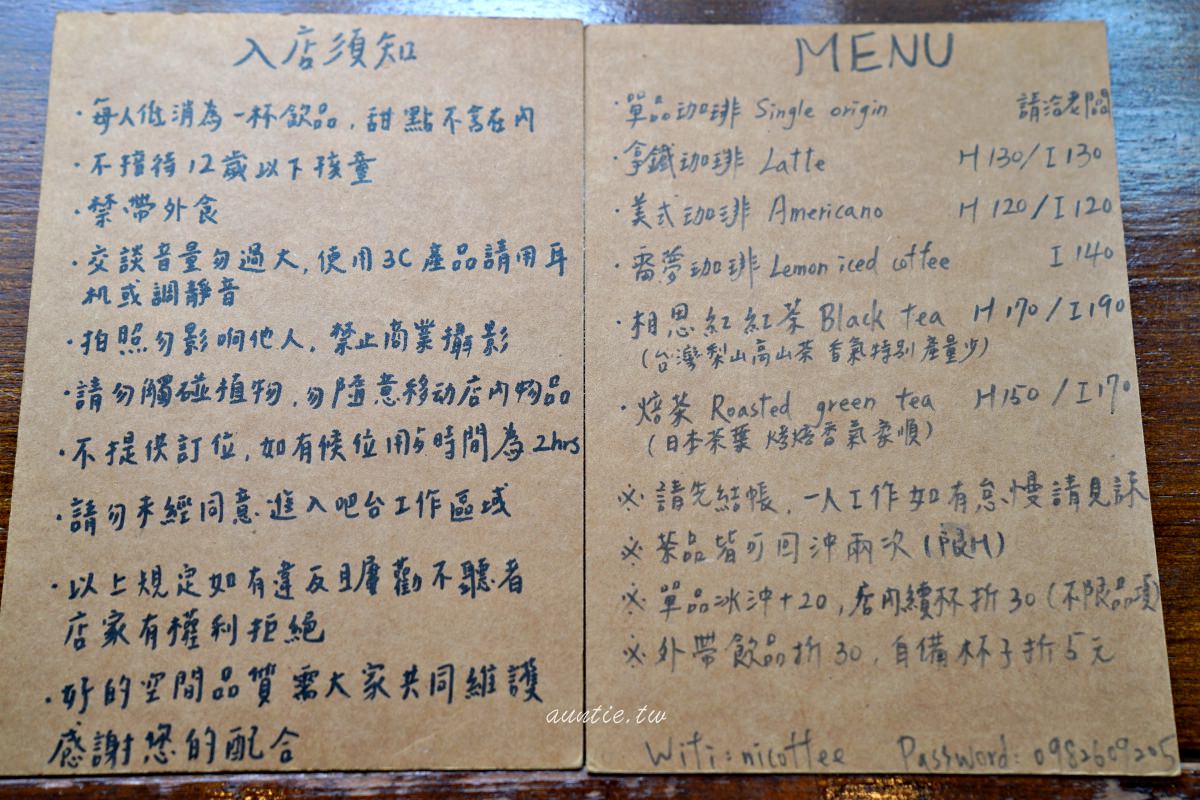 入店須知
·每人低消為一杯飲品，甜點不含在內
·不接待12歲以下孩童
·禁帶外食
·交談音量勿過大，使用3C產品請用耳
机或調靜音
·拍照勿影响他人，禁止商業攝影
·請勿觸碰植物，勿隨意移动店內物品
·不提供訂位，如有候位用時間為2hrs
·請勿未經同意進入吧台工作區域
·以上規定如有違反且屢勸不聽者
店家有權利拒絕
·好的空間品質需大家共同維護
感謝您的配合
MENU
·單品珈琲 Single origin 請洽老闆
·拿鐵珈琲 Latte H130/I130
·美式珈琲 Americano H120/I120
·啻夢珈琲 Lemon iced coffee I140
·相思紅紅茶 Black tea H170/I190
(台灣梨山高山茶 香氣特別 產量少)
·焙茶 Roasted green tea H150/I170
(日本茶葉 烤焙香氣柔順)
※請先結帳，一人工作如有怠慢請見諒
※茶品皆可回沖兩次(限H)
※單品冰沖+20，店內續杯折30(不限品項)
※外帶飲品折30，自備杯子折5元
Wifi:nicoffee Password:0982609205
auntie.tw